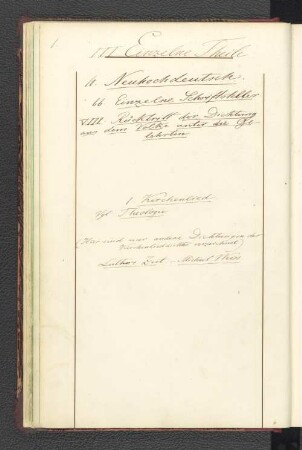 III Einzelne Theile
4 Neuhochdeutsch.
bb Einzelne Schriftsteller
VIII Rücktritt der Dichtung
aus dem Volke unter die Ge-
lehrten
1 Kirchenlied
Vgl. Theologie
(Hier sind nur andere Dichtungen der
Kirchenliederdichter verzeichnet)
Luther